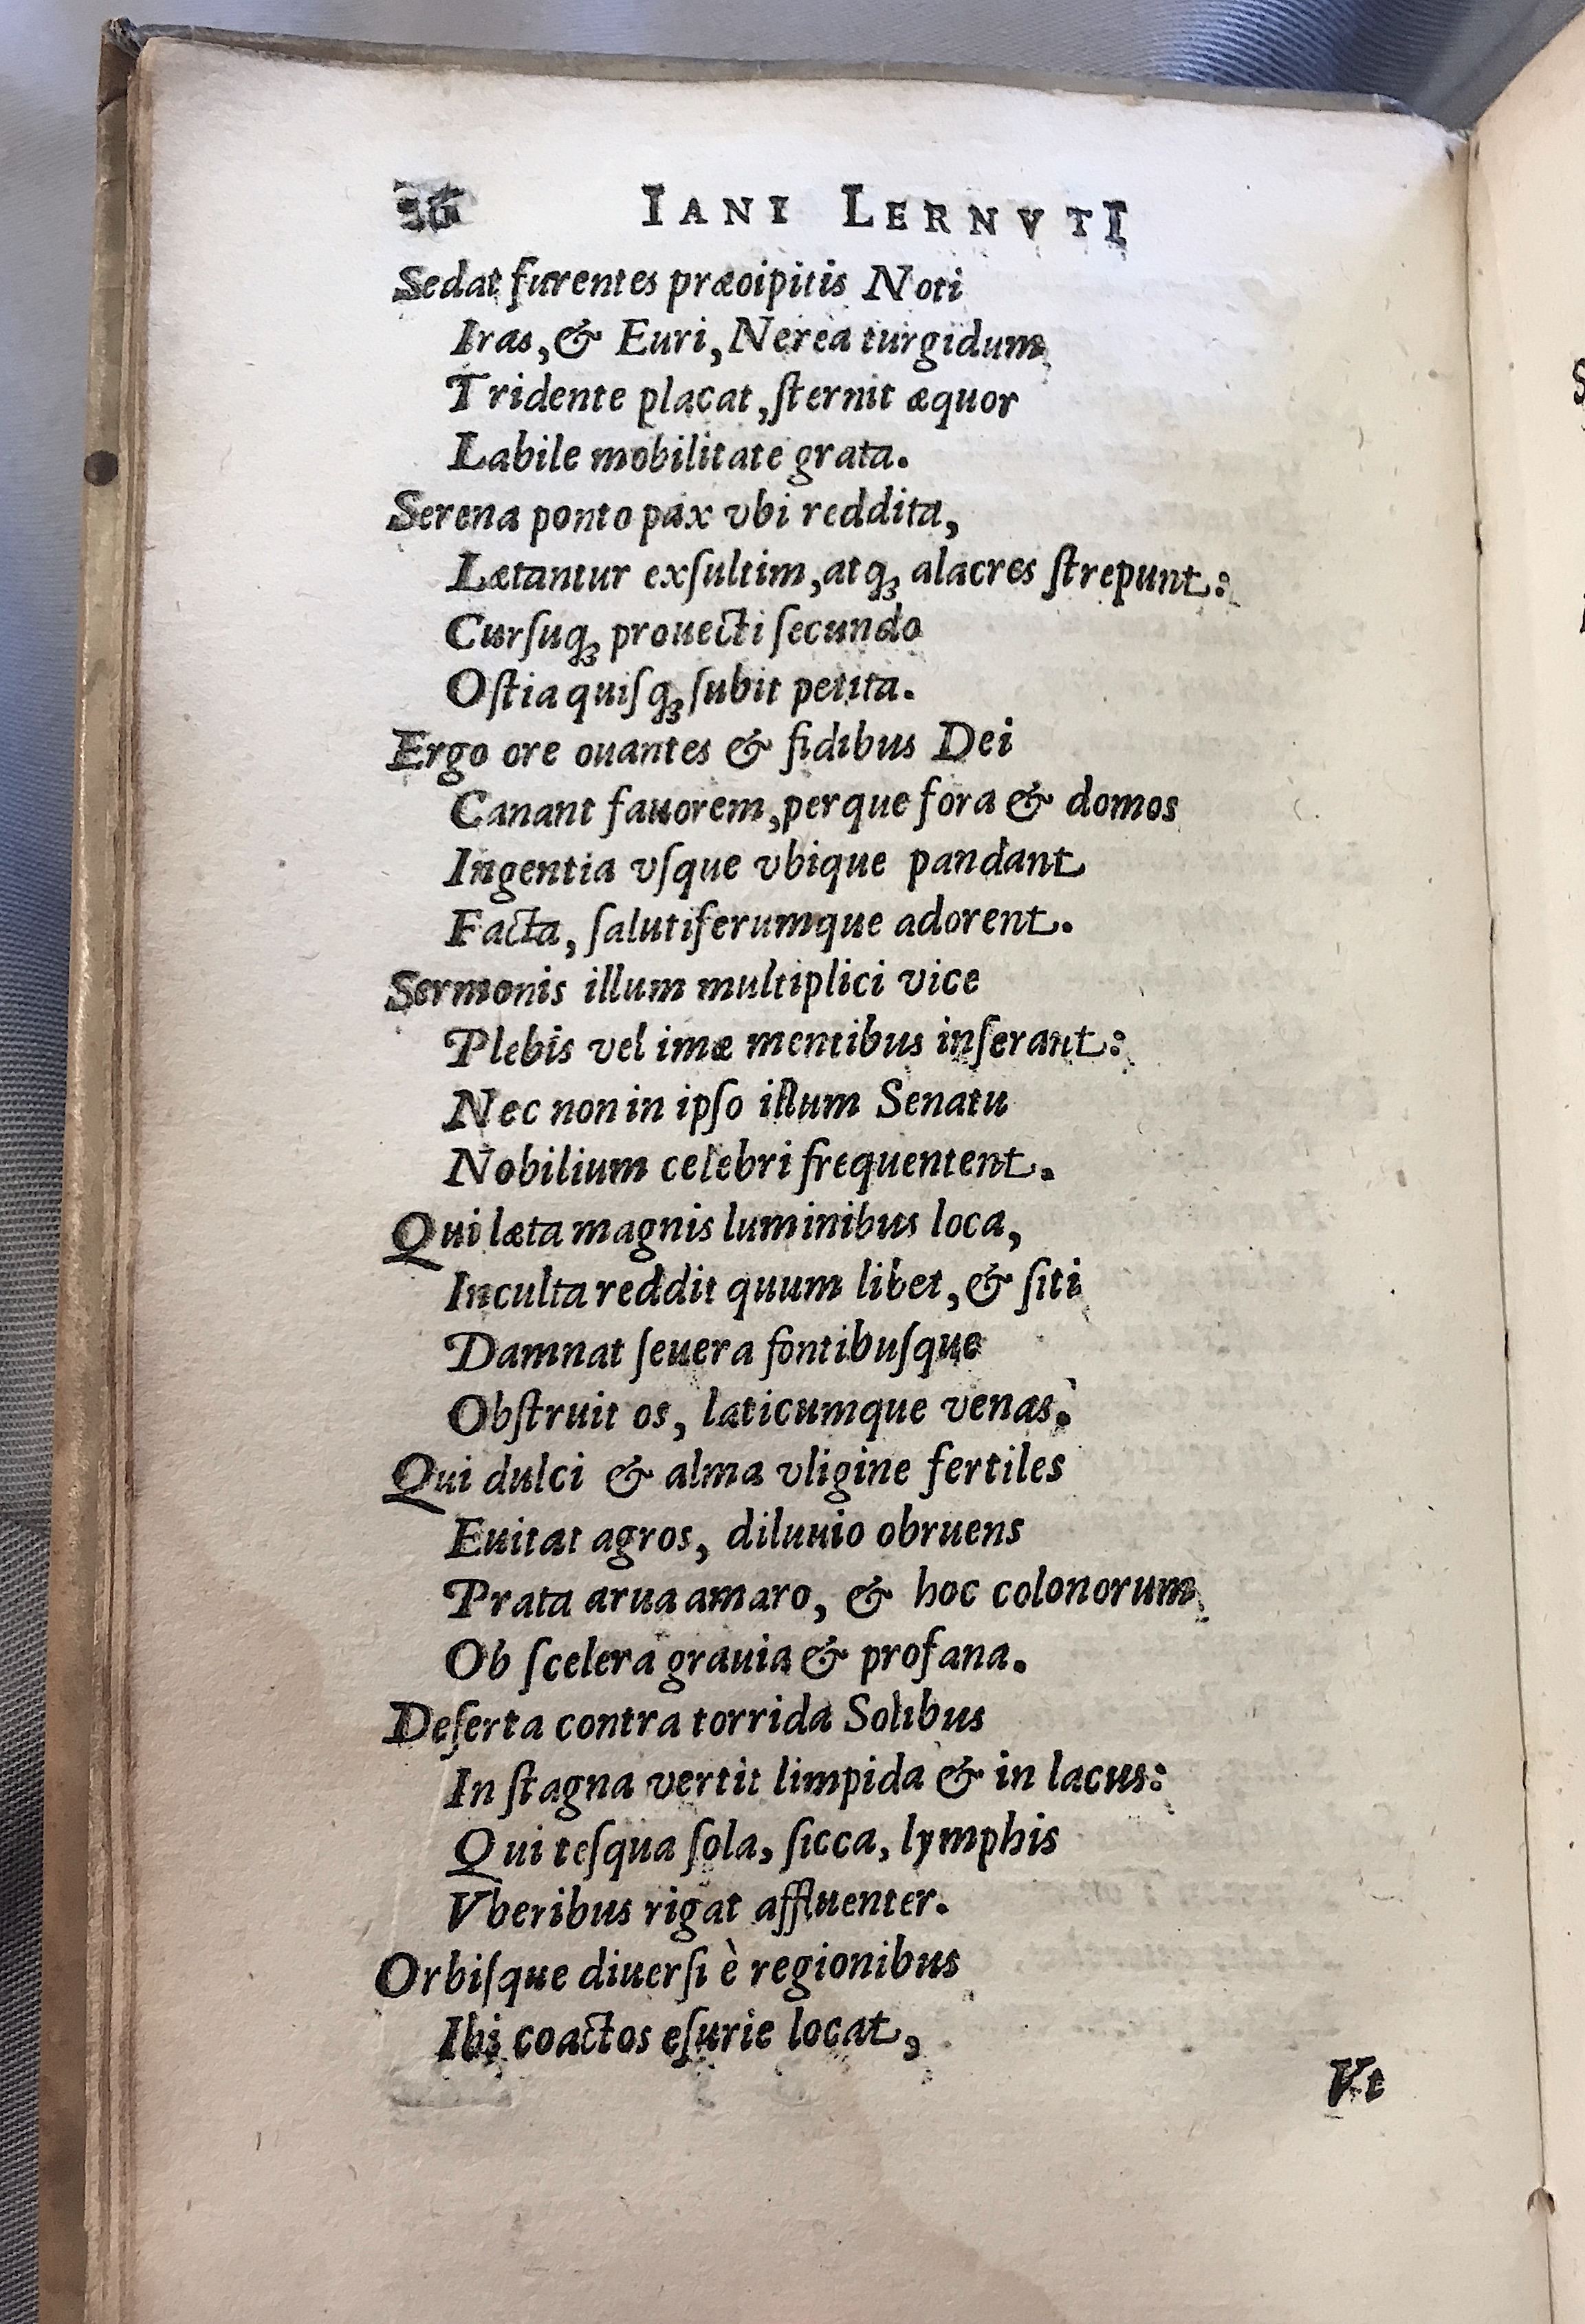 36 IANI LERNVTI
Sedat furentes præoipitis Noti
Iras, & Euri, Nerea turgidum
Tridente placat, ſternit æquor
Labile mobilitate grata.
Serena ponto pax vbi reddita,
Lætantur exſultim, atq; alacres ſtrepunt:
Curſuq; prouecti ſecundo
Oſtia quiſq; ſubit petita.
Ergo ore ouantes & fidibus Dei
Canant fauorem, perque fora & domos
Ingentia vſque vbique pandant
Facta, ſalutiferumque adorent.
Sermonis illum multiplici vice
Plebis vel imæ mentibus inſerant:
Nec non in ipſo illum Senatu
Nobilium celebri frequentent.
Qui læta magnis luminibus loca,
Inculta reddit quum libet, & ſiti
Damnat ſeuera fontibuſque
Obſtruit os, laticumque venas.
Qui dulci & alma vligine fertiles
Euitat agros, diluuio obruens
Prata arua amaro, & hoc colonorum
Ob ſcelera grauia & profana.
Deſerta contra torrida Solibus
In ſtagna vertit limpida & in lacus:
Qui teſqua ſola, ſicca, lymphis
Vberibus rigat affluenter.
Orbiſque diuerſi è regionibus
Ibi coactos eſurie locat,
Vt